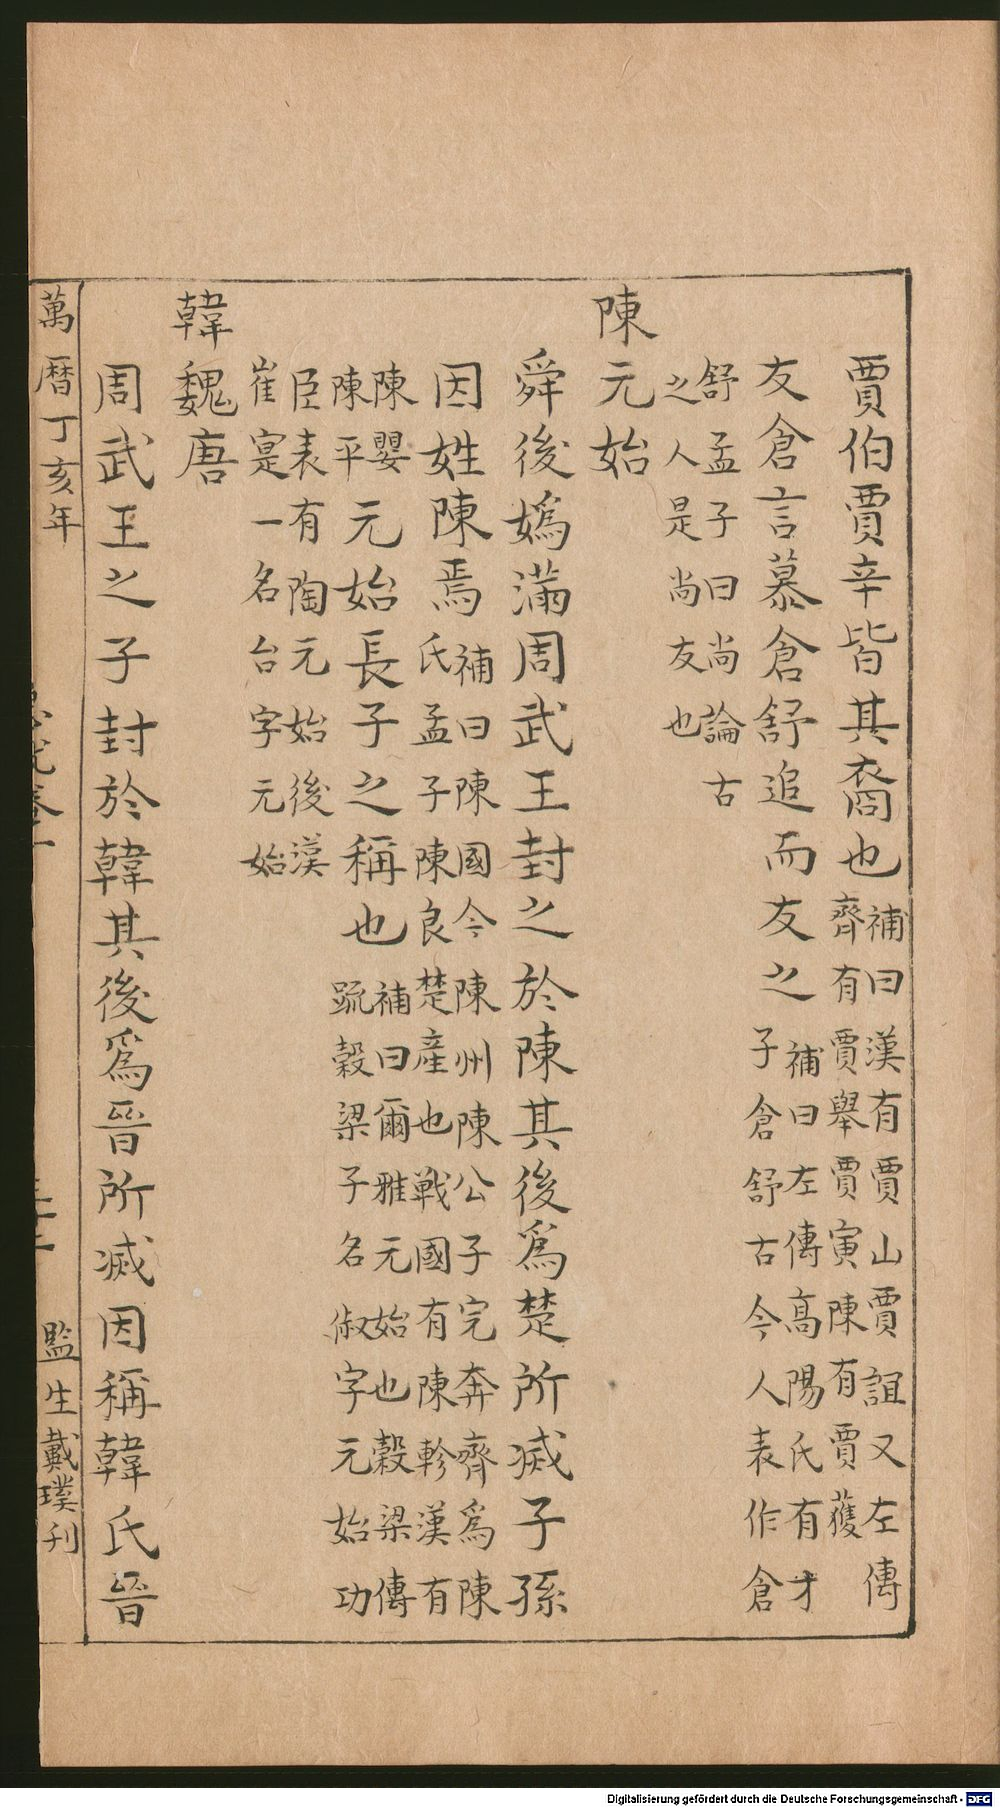 賈伯賈辛皆其裔也補曰漢有賈山賈誼又左傳
齊有賈舉賈寅陳有賈獲
友倉言慕倉舒追而友之補曰左傳高陽氏有才
子倉舒古今人表作倉
舒孟子曰尚論古
之人是尚友也
陳元始
舜後嬀滿周武王封之於陳其後爲楚所滅子孫
因姓陳焉補曰陳國今陳州陳公子完奔齊爲陳
氏孟子陳良楚產也戰國有陳軫漢有
陳嬰
陳平元始長子之稱也補曰爾雅元始也穀梁傳
疏穀梁子名俶字元始功
臣表有陶元始後漢
崔寔一名台字元始
韓魏唐
周武王之子封於韓其後爲晉所滅因稱韓氏晉
萬曆丁亥年
監生戴璞刊
Digitalisierung gefördert durch die Deutsche Forschungsgemeinschaft -
DFG